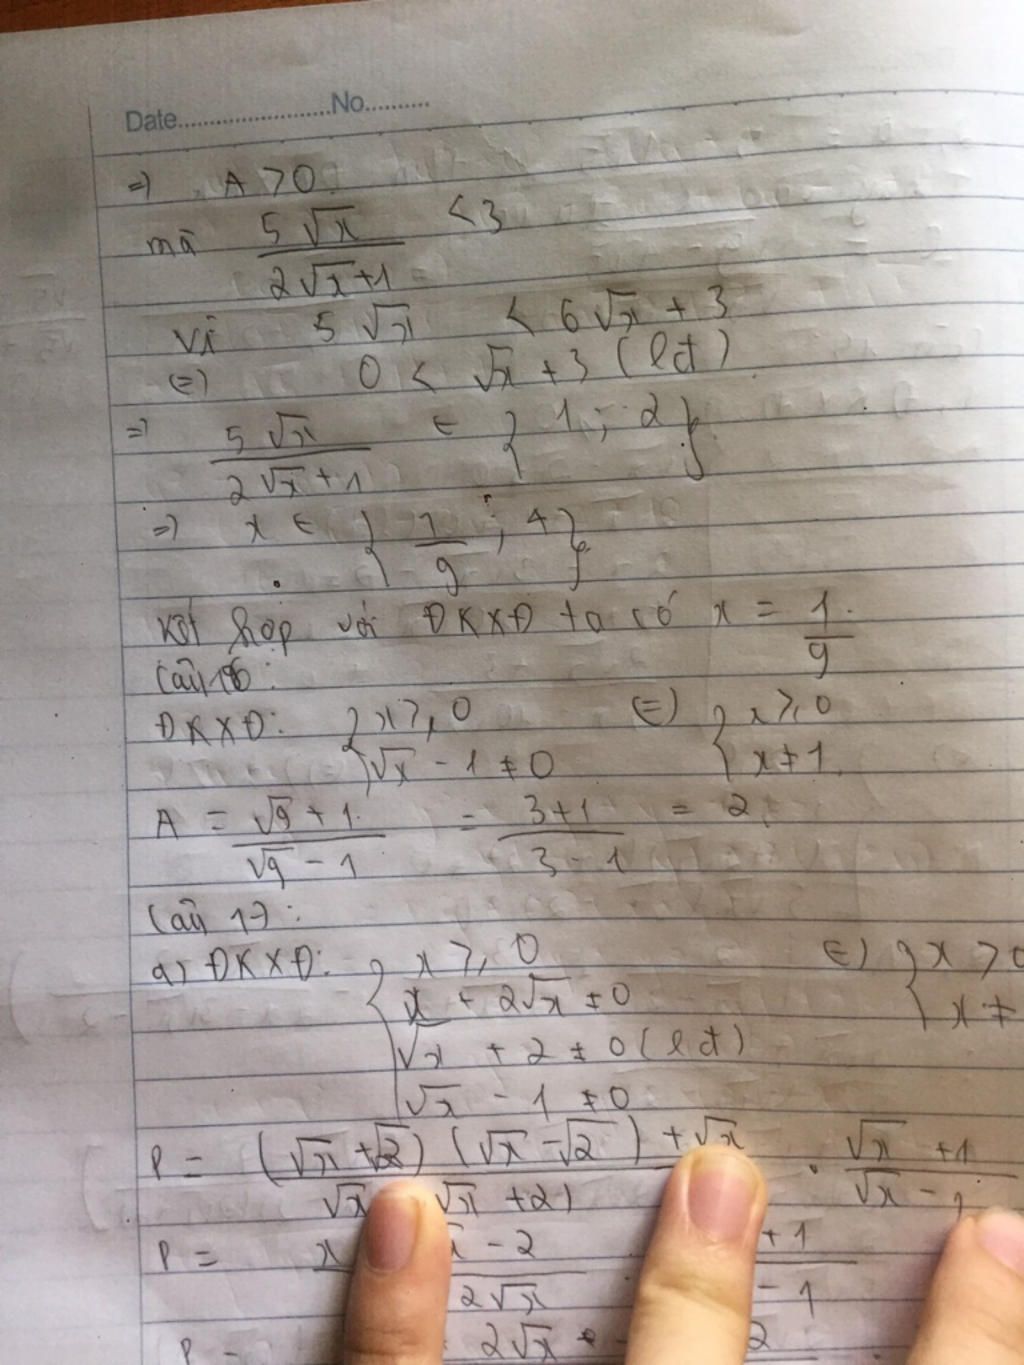 Date.......................No..........
=) A > 0
mà 5√x / (2√x + 1) < 3
Vì 5√x < 6√x + 3
(=) 0 < √x + 3 (lđ)
=) 5√x / (2√x + 1) ∈ { 1 ; 2 }
=) x ∈ { 1/9 ; 4 }
Kết hợp với ĐKXĐ ta có x = 1/9
Câu 16:
ĐKXĐ: { x ≥ 0 ; √x - 1 ≠ 0 (=) { x ≥ 0 ; x ≠ 1
A = (√9 + 1) / (√9 - 1) = (3 + 1) / (3 - 1) = 2
Câu 17:
a) ĐKXĐ: { x ≥ 0 (=) { x > 0
x + 2√x ≠ 0 x ≠
√x + 2 ≠ 0 (lđ)
√x - 1 ≠ 0
P = (√x + √2) (√x - √2) + √x / √x √x + 2) . (√x + 1) / (√x -
P = x - 2 / 2√x + 1 / - 1
P = 2√x 2